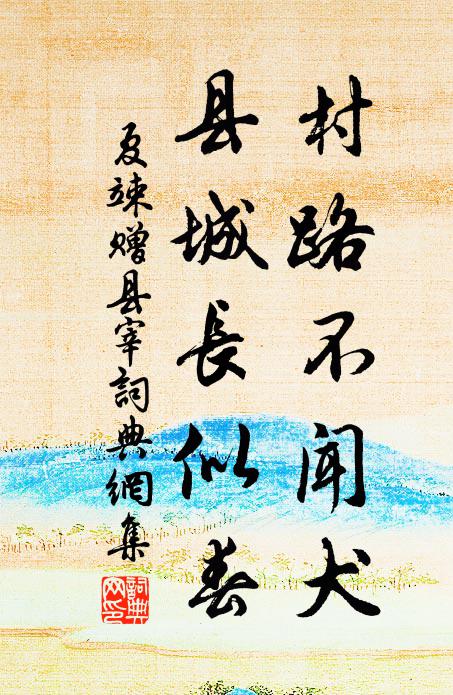 村路不闻犬
县城長似春
夏竦赠县宰詞典網集
詞典